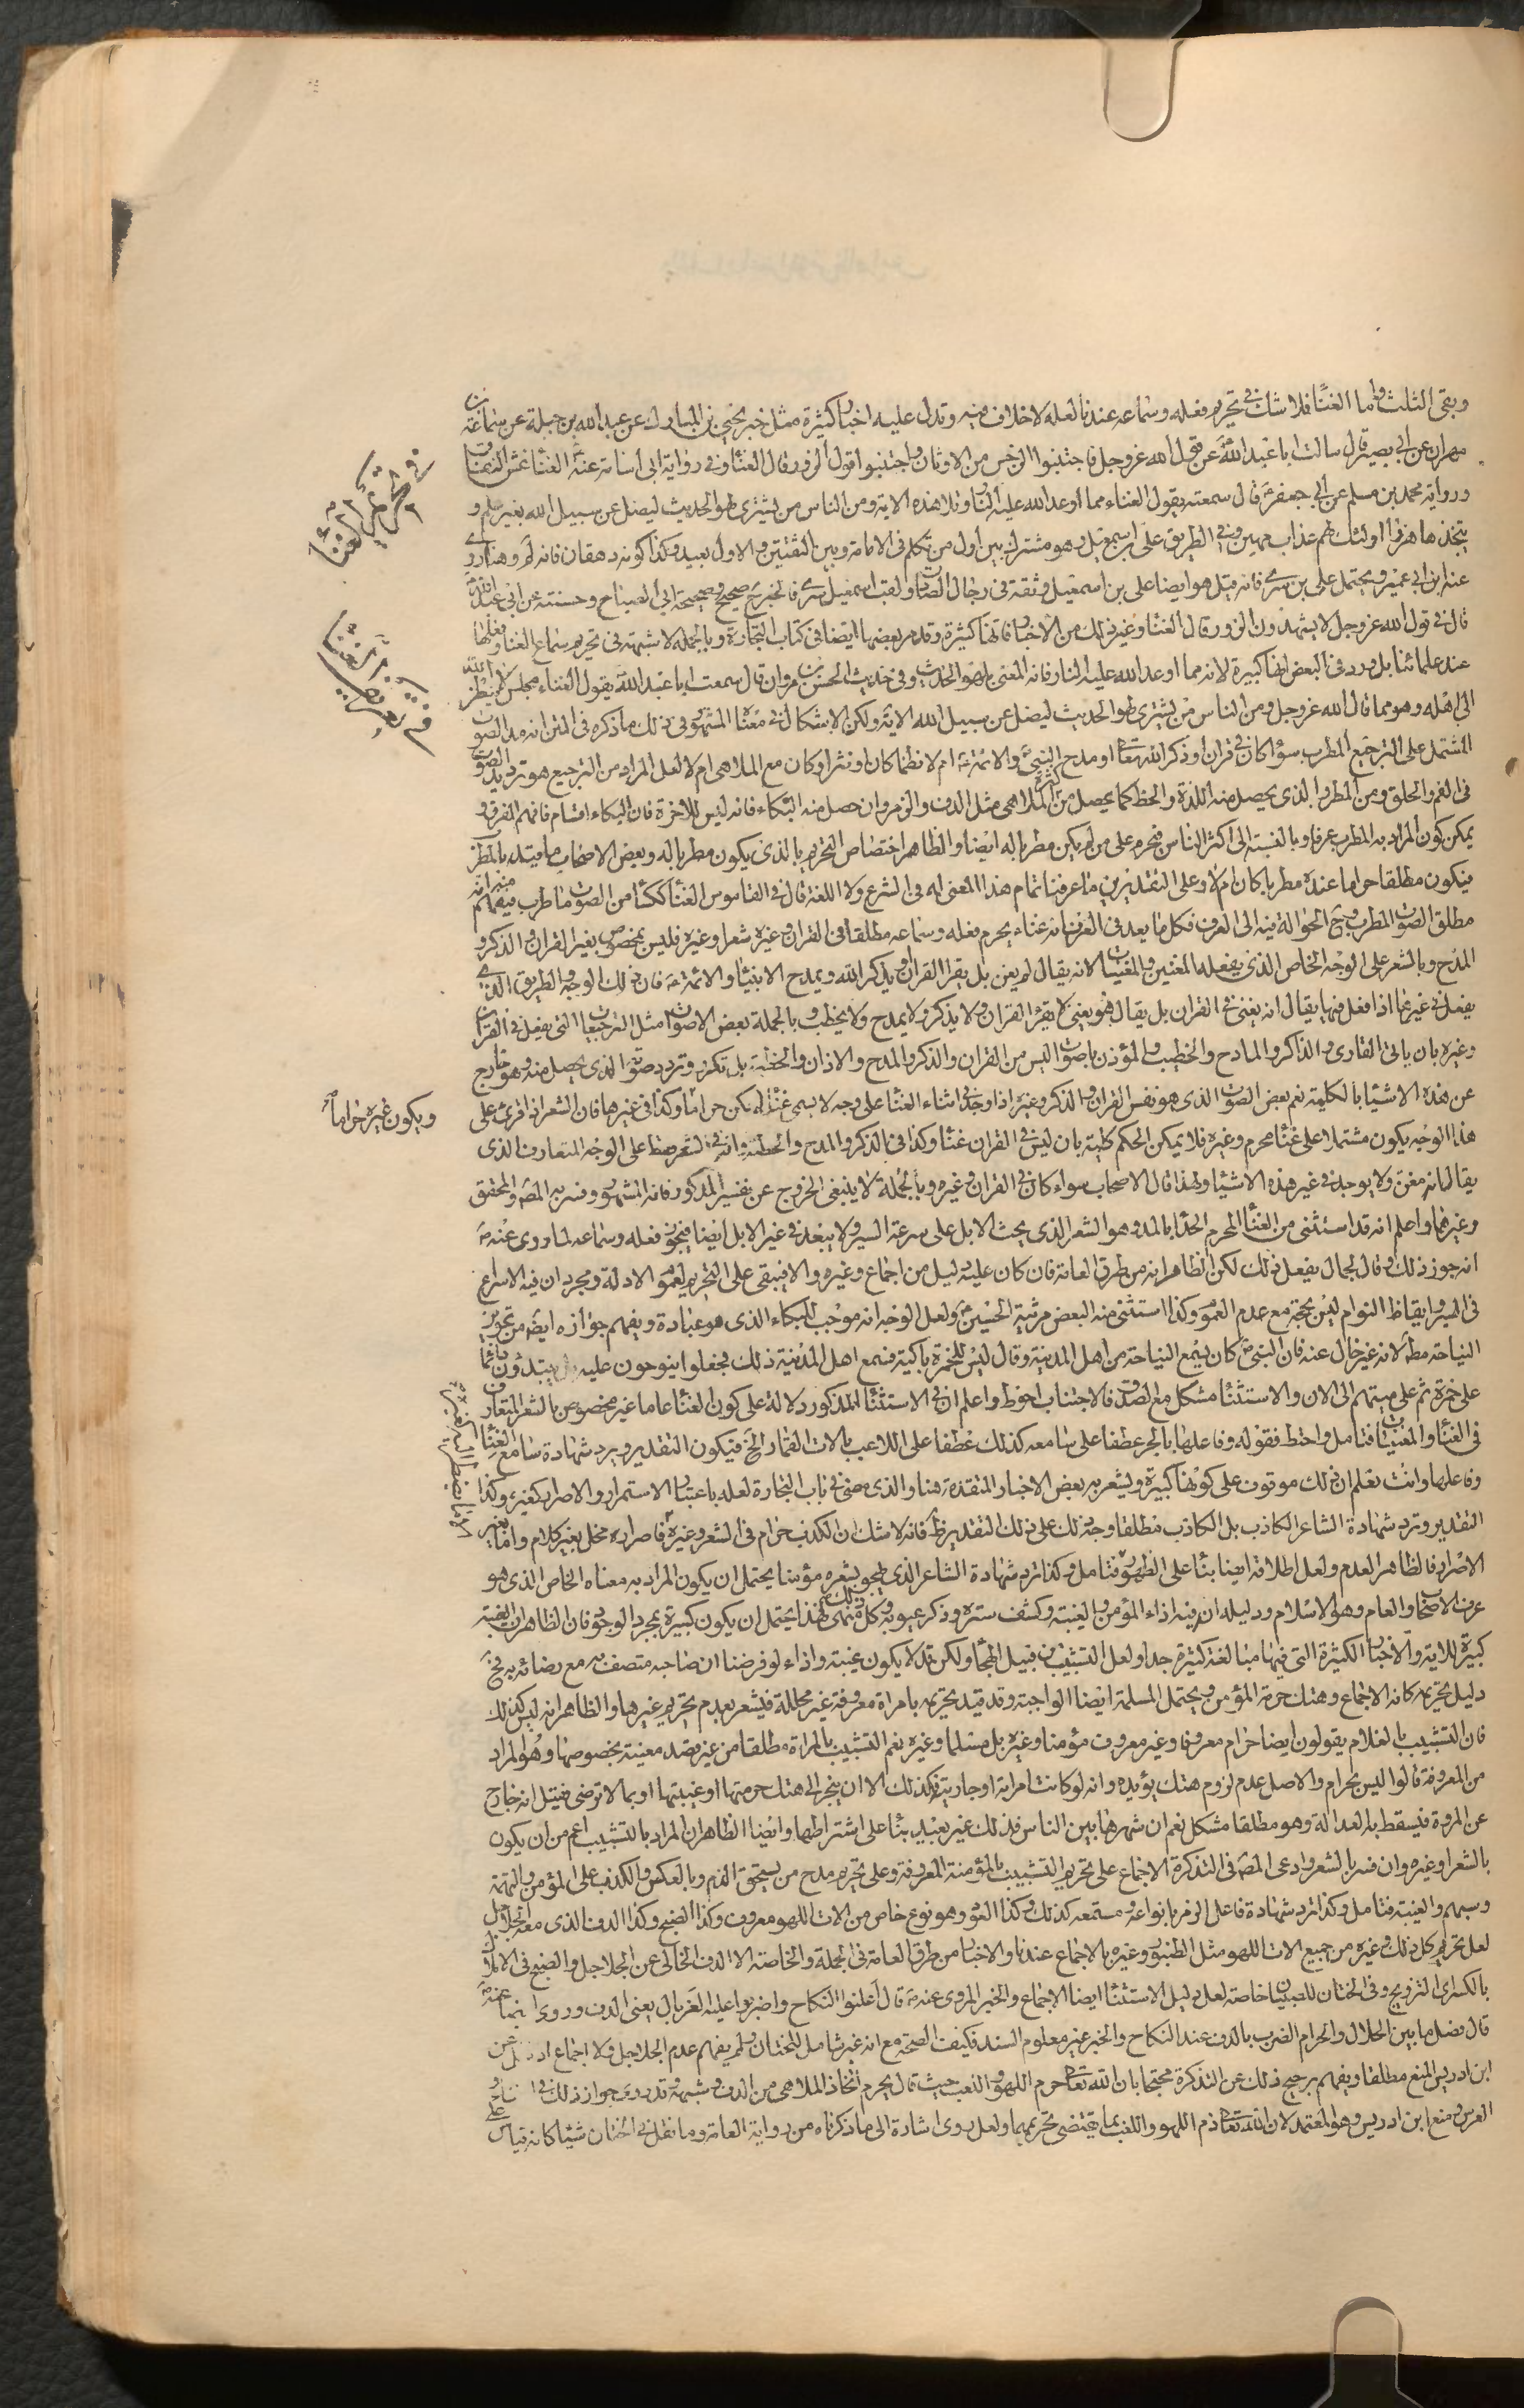 وبقى الثلث واما الغنا فلا شك في تحريم فعله وسماعه عندنا لعله لا خلاف فيه وتدل عليه اخبار كثيرة مثل خبر يحيى بن المبارك عن عبد الله بن جبلة عن سماعة بن
مهران عن ابي بصير قال سالت ابا عبد الله عن قول الله عز وجل فاجتنبوا الرجس من الاوثان واجتنبوا قول الزور قال الغناء وفي رواية ابي اسامة عنه الغنا عش النفاق
ورواية محمد بن مسلم عن ابي جعفر قال سمعته يقول الغناء مما اوعد الله عليه النار وتلا هذه الاية ومن الناس من يشترى لهو الحديث ليضل عن سبيل الله بغير علم و
يتخذها هزوا اولئك لهم عذاب مهين وفي الطريق على بن اسمعيل وهو مشترك بين اول من تكلم في الامامة وبين الثقتين والاول بعيد وكذا كونه دهقان فانه لم
عنه ابن ابي عمير ويحتمل على بن سرى فانه قيل هو ايضا على بن اسمعيل وثقة في رجال ولقب اسمعيل سرى فالخبر صحيح وصحيحة ابي الصباح وحسنته عن ابي عبد الله
قال في قول الله عز وجل لا يشهدون الزور قال الغنا وغير ذلك من الاخبار فانها كثيرة وقد مر بعضها ايضا في كتاب التجارة وبالجملة لا شبهة في تحريم سماع الغنا وفعلها
عند علمائنا بل ورد في البعض انها كبيرة لانه مما اوعد الله عليه النار فانه المعنى بلهو الحديث وفي حديث الحسن بن مروان قال سمعت ابا عبد الله يقول الغناء مجلس لا ينظر الله
الى اهله وهو مما قال الله عز وجل ومن الناس من يشترى لهو الحديث ليضل عن سبيل الله الاية ولكن الاشكال في معناه المشهور في ذلك ما ذكره في المتن انه مد الصوت
المشتمل على الترجيع المطرب سواء كان في قران او ذكر الله تعالى او مدح النبي والائمة ام لا نظما كان او نثرا وكان مع الملاهى ام لا لعل المراد من الترجيع هو ترديد الصوت
في الفم والحلق ومن المطرب الذي يحصل منه اللذة والحظ كما يحصل من اكثر الملاهى مثل الدف والزمر وان حصل منه البكاء فانه ليس للاخرة فان البكاء اقسام فافهم الفرق و
يمكن كون المراد به المطرب عرفا وبالنسبة الى اكثر الناس فيحرم على من لم يكن مطربا له ايضا والظاهر اختصاص التحريم بالذي يكون مطربا له وبعض الاصحاب ما قيده بالمطرب
فيكون مطلقا حراما عنده مطربا كان ام لا وعلى التقديرين ما عرفنا تمام هذا المعنى له في الشرع ولا اللغة قال في القاموس الغنا ككسا من الصوت ما طرب فيفهم منه انه
مطلق الصوت المطرب وح الحوالة فيه الى العرف فكل ما يعد في العرف انه غناء يحرم فعله وسماعه مطلقا في القران وغيره شعرا وغيره فليس بمخصوص بغير القران والذكر و
المدح وبالشعر على الوجه الخاص الذي يفعله المغنين والمغنيات لانه يقال لم يغن بل يقرا القران ويذكر الله ويمدح الانبياء والائمة فان ذلك الوجه والطريق الذي
يفعل في غيرها اذا فعل فيها يقال انه يغنى في القران بل يقال هو يغنى لا يقرء القران ولا يذكر ولا يمدح ولا يخطب وبالجملة بعض الاصوات مثل الترجيعات التي يفعل في القران
وغيره بان ياتي القارى والذاكر والمادح والخطيب والمؤذن باصوات ليس من القران والذكر والمدح والاذان والخطبة بل تكرر وتردد صوته الذي يحصل منه وهو خارج
عن هذه الاشياء بالكلية نعم بعض الصوت الذي هو نفس القران والذكر وغيره اذا وجد في اثناء الغنا على وجه لا يسمى غناء لم يكن حراما وكذا في غيرها فان الشعر اذا قرئ على
هذا الوجه يكون مشتملا على غناء محرم وغيره فلا يمكن الحكم كلية بان ليس في القران غناء وكذا في الذكر والمدح والخطبة وانه في الشعر فقط على الوجه المتعارف الذي
يقال انه مغن ولا يوجد في غير هذه الاشياء ولهذا قال الاصحاب سواء كان في القران وغيره وبالجملة لا ينبغى الخروج عن تفسير المذكور فانه المشهور وفسر به المصنف والمحقق
وغيرهما واعلم انه قد استثنى من الغناء المحرم الحدا بالمد وهو الشعر الذي يحث الابل على سرعة السير ولا يبعد في غير الابل ايضا فيجوز فعله وسماعه لما روى عنه
انه جوز ذلك وقال لجمال يفعل ذلك لكن الظاهر انه من طرق العامة فان كان عليه دليل من اجماع وغيره والا فيبقى على التحريم لعموم الادلة ومجرد ان فيه الاسراع
في السير وايقاظ النوام ليس بحجة مع عدم العموم وكذا استثنى منه البعض مرثية الحسين ولعل الوجه انه موجب للبكاء الذي هو عبادة ويفهم جوازه ايضا من تجويز
النياحة مطلقا لانه غير خال عنه فان النبي كان يسمع النياحة من اهل المدينة وقال ليس لحمزة باكية فسمع اهل المدينة ذلك فجعلوا ينوحون عليه يبتدؤن
على حمزة ثم على ميتهم الى الان والاستثناء مشكل مع الصدق فالاجتناب احوط واعلم ان في الاستثناء المذكور دلالة على كون الغنا عاما غير مخصوص بالشعر المتعارف
في الغناء والمغنيات فتامل واحتط فقوله وفاعلها بالجر عطفا على سامعه كذلك عطفا على اللاعب بالات القمار الخ فيكون التقدير ويرد شهادة سامع الغناء
وفاعلها وانت تعلم ان ذلك موقوف على كونها كبيرة ويشعر به بعض الاخبار المتقدمة هنا والذي مضى في باب التجارة لعله باعتبار الاستمرار والاصرار كغيره وكذا
التقدير وترد شهادة الشاعر الكاذب بل الكاذب مطلقا وجه ذلك على ذلك التقدير ظاهر فانه لا شك ان الكذب حرام في الشعر وغيره فاصراره مخل بغير كلام واما بغير
الاصرار فالظاهر العدم ولعل اطلاقه ايضا بناء على الظهور فتامل وكذا ترد شهادة الشاعر الذي يهجو بشعره مؤمنا يحتمل ان يكون المراد به معناه الخاص الذي هو
عرف الاصحاب والعام وهو الاسلام ودليله ان فيه اذاء المؤمن والغيبة وكشف ستره وذكر عيوبه وكل ذلك منهى فهذا يحتمل ان يكون كبيرة بمجرد الوجود فان الظاهر ان الغيبة
كبيرة للاية والاخبار الكثيرة التي فيها مبالغة كثيرة جدا ولعل التشبيب من قبيل الهجاء ولكن قد لا يكون غيبة واذاء لو فرضنا ان صاحبه متصف به مع رضائه به فح
دليل تحريمه كانه الاجماع وهتك حرمة المؤمن ويحتمل المسلمة ايضا الواجبة وقد قيد تحريمه بامراة معروفة غير محللة فيشعر بعدم تحريم غيرها والظاهر انه ليس كذلك
فان التشبيب بالغلام يقولون ايضا حرام معروفا وغير معروف مؤمنا وغيره بل مسلما وغيره نعم التشبيب بالمراة مطلقا من غير قصد معينة بخصوصها وهو المراد
من المعروفة قالوا ليس بحرام والاصل عدم لزوم هتك يؤيده وانه لو كانت امراته او جاريته فكذلك الا ان ينجر الى هتك حرمتها او غيبتها او بما لا ترضى فقيل انه خارج
عن المروة فيسقط به العدالة وهو مطلقا مشكل نعم ان شهرها بين الناس فذلك غير بعيد بناء على اشتراطها وايضا الظاهر ان المراد بالتشبيب اعم من ان يكون
بالشعر او غيره وان فسر بالشعر وادعى المصنف في التذكرة الاجماع على تحريم التشبيب بالمؤمنة المعروفة وعلى تحريم مدح من يستحق الذم وبالعكس والكذب على المؤمن والتهمة
وسبهم والغيبة فتامل وكذا ترد شهادة فاعل الزمر بانواعه ومستمعه كذلك وكذا العود وهو نوع خاص من الات اللهو معروف وكذا الصنج وكذا الدف الذي معه الجلاجل
لعل تحريم كل ذلك وغيره من جميع الات اللهو مثل الطنبور وغيره بالاجماع عندنا والاخبار من طرق العامة في الجملة والخاصة الا الدف الخالى عن الجلاجل والصنج في الاملاك
بالكسر اى التزويج وفي الختان للصبيان خاصة لعل دليل الاستثناء ايضا الاجماع والخبر المروى عنه قال اعلنوا النكاح واضربوا عليه الغربال يعنى الدف وروى ايضا عنه
قال فصل ما بين الحلال والحرام الضرب بالدف عند النكاح والخبر غير معلوم السند فكيف الصحة مع انه غير شامل للختان ولم يفهم عدم الجلاجل ولا اجماع
ابن ادريس المنع مطلقا ويفهم ترجيح ذلك عن التذكرة محتجا بان الله تعالى حرم اللهو واللعب حيث قال يحرم اتخاذ الملاهى من الدف وشبهه وقد روى جواز ذلك في النكاح و
العرس ومنع ابن ادريس وهو المعتمد لان الله تعالى ذم اللهو واللعب بما يقتضى تحريمهما ولعل روى اشارة الى ما ذكرناه من رواية العامة وما نقل في الختان شيئا كانه قياس على
في تحريم الغناء
في تعريف الغناء
ويكون غيره حراما